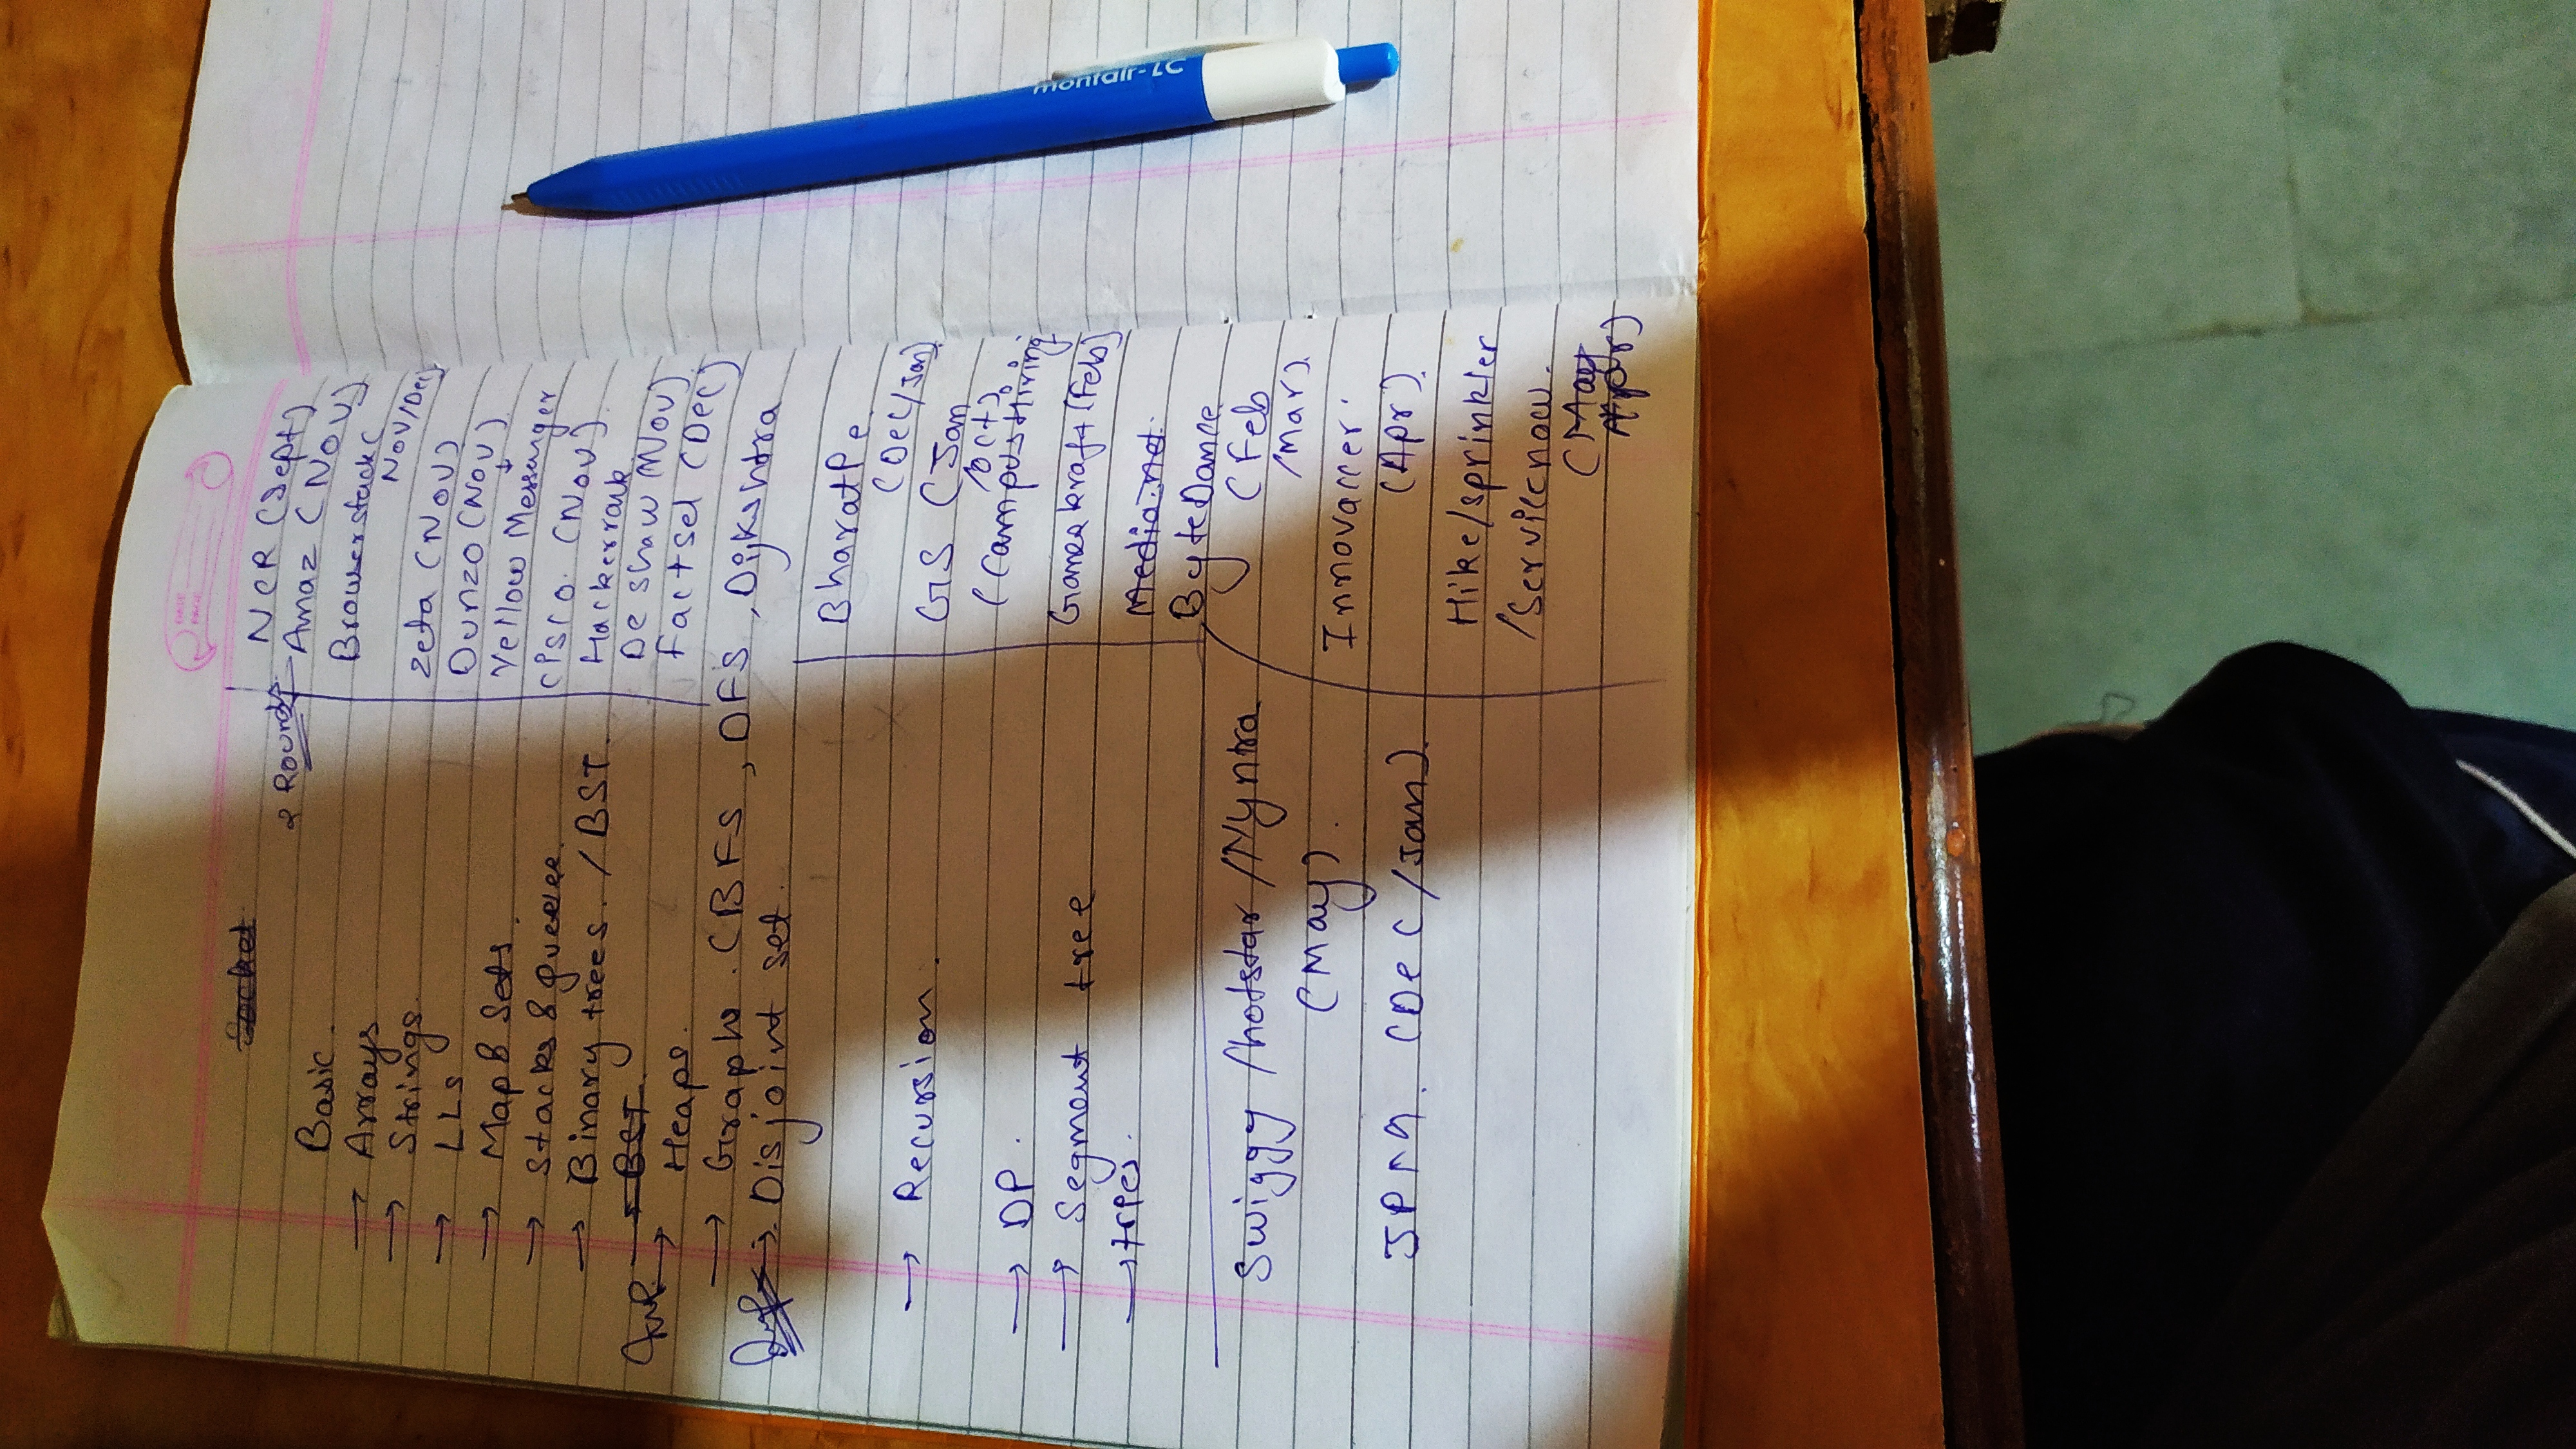 DATE
PAGE
Socket
Basic.
→ Arrays
→ Strings.
→ LLs
→ Map & Sets.
→ Stacks & queues.
→ Binary trees. / BST.
→ BST.
Imp → Heaps.
→ Graphs. (BFS, DFS, Dijkshtra
Imp → Disjoint set.
→ Recursion.
→ DP.
→ Segment tree
→ tries.
Swiggy /hotstar /Myntra
(May).
JPMC. (Dec/Jan).
NCR (Sept)
2 Rounds → Amaz (Nov)
Browserstack (
Nov/Dec)
Zeta (Nov)
Dunzo (Nov)
Yellow Messanger
Cisco. (Nov).
Hackerrank.
De shaw (Nov).
Factset (Dec)
BharatPe.
(Dec/Jan)
GS (Jan
/Oct).
(Campus Hiring
Gameskraft (Feb)
Media.net.
ByteDance
(Feb
/Mar).
Innovaccer.
(Apr).
Hike/sprinkler
/Servicenow.
(May
Apr)
montair-LC